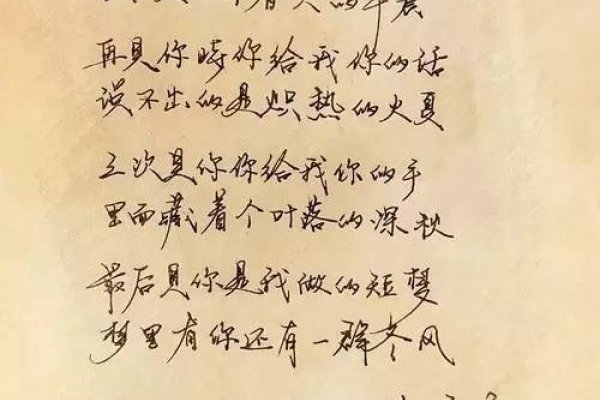 个春天的早晨
再见你时你给我你的话
说不出的是炽热的火夏
三次见你你给我你的手
里面藏着个叶落的深秋
最后见你是我做的短梦
梦里有你还有一群冬风